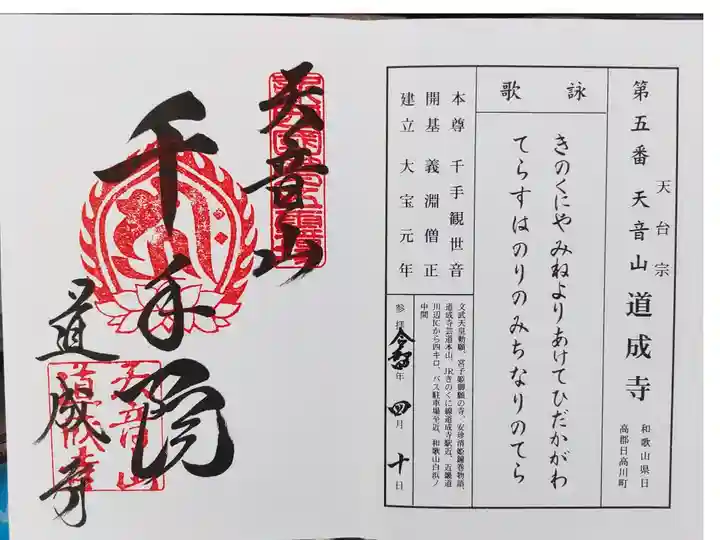 第五番 天台宗 天音山 道成寺 和歌山県日
高郡日高川町
詠歌
きのくにや みねよりあけてひだかがわ
てらすはのりのみちなりのてら
本尊 千手観世音
開基 義淵僧正
建立 大宝元年
文武天皇勅願、宮子姫御願の寺、安珍清姫鐘巻物語、
道成寺芸道本山、JRきのくに線道成寺駅近、近畿道
川辺ICから四キロ、バス駐車場至近、和歌山白浜ノ
中間
参拝 令和 年 四月 十日
天音山
千手院
道成寺
天音山
道成寺